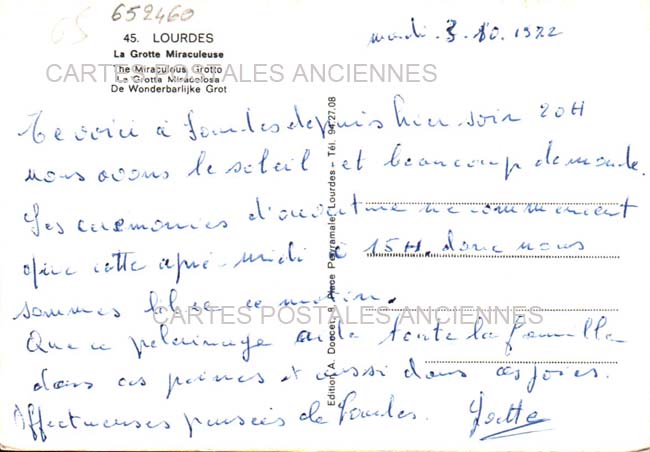 652460
45. LOURDES
La Grotte Miraculeuse
The Miraculous Grotto
La Grotte Miracolosa
De Wonderbarlijke Grot
CARTES POSTALES ANCIENNES
mardi. 3.10.1972
Te voici à Lourdes depuis hier soir 20H
nous avons le soleil et beaucoup de monde.
Les ceremonies d'ouverture ne commencent
que cette après-midi à 15H. donc nous
sommes libres ce matin.
CARTES POSTALES ANCIENNES
Que ce pelerinage aide toute la famille
dans ces peines et aussi dans ces joies.
Affectueuses pensées de Lourdes.
Edition A. Doucet, 9, Place Peyramale, Lourdes - Tél. 94.27.08